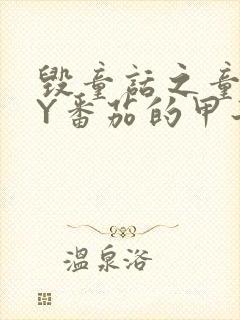 毁童话之童
Y番茄的甲
温泉浴